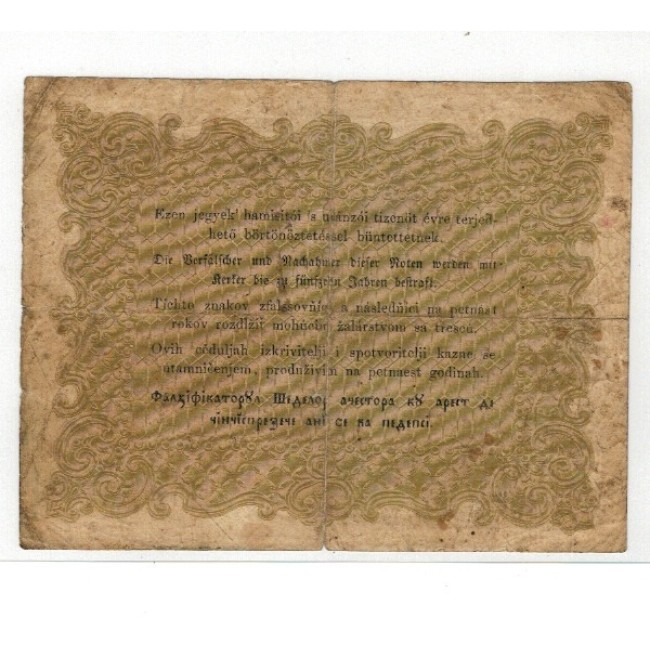 Ezen jegyek' hamisitói 's utánzói tizenöt évre terjed-
hető börtönöztetéssel büntettetnek.
Die Verfälscher und Nachahmer dieser Noten werden mit
Kerker bis zu fünfzehn Jahren bestraft.
Tichto znakov zfalssovňíci a následňíci na petnást
rokov rozdĺžiť mohúcím žalárstvom sa tresců.
Ovih céduljah izkrivitelji i spotvoritelji kazne se
utamničenjem, produživim na petnaest godinah.
Фалзіфікаторꙋл Шеделор ачестора кꙋ арест де
чінчіспрезече ані се ва педепсі.